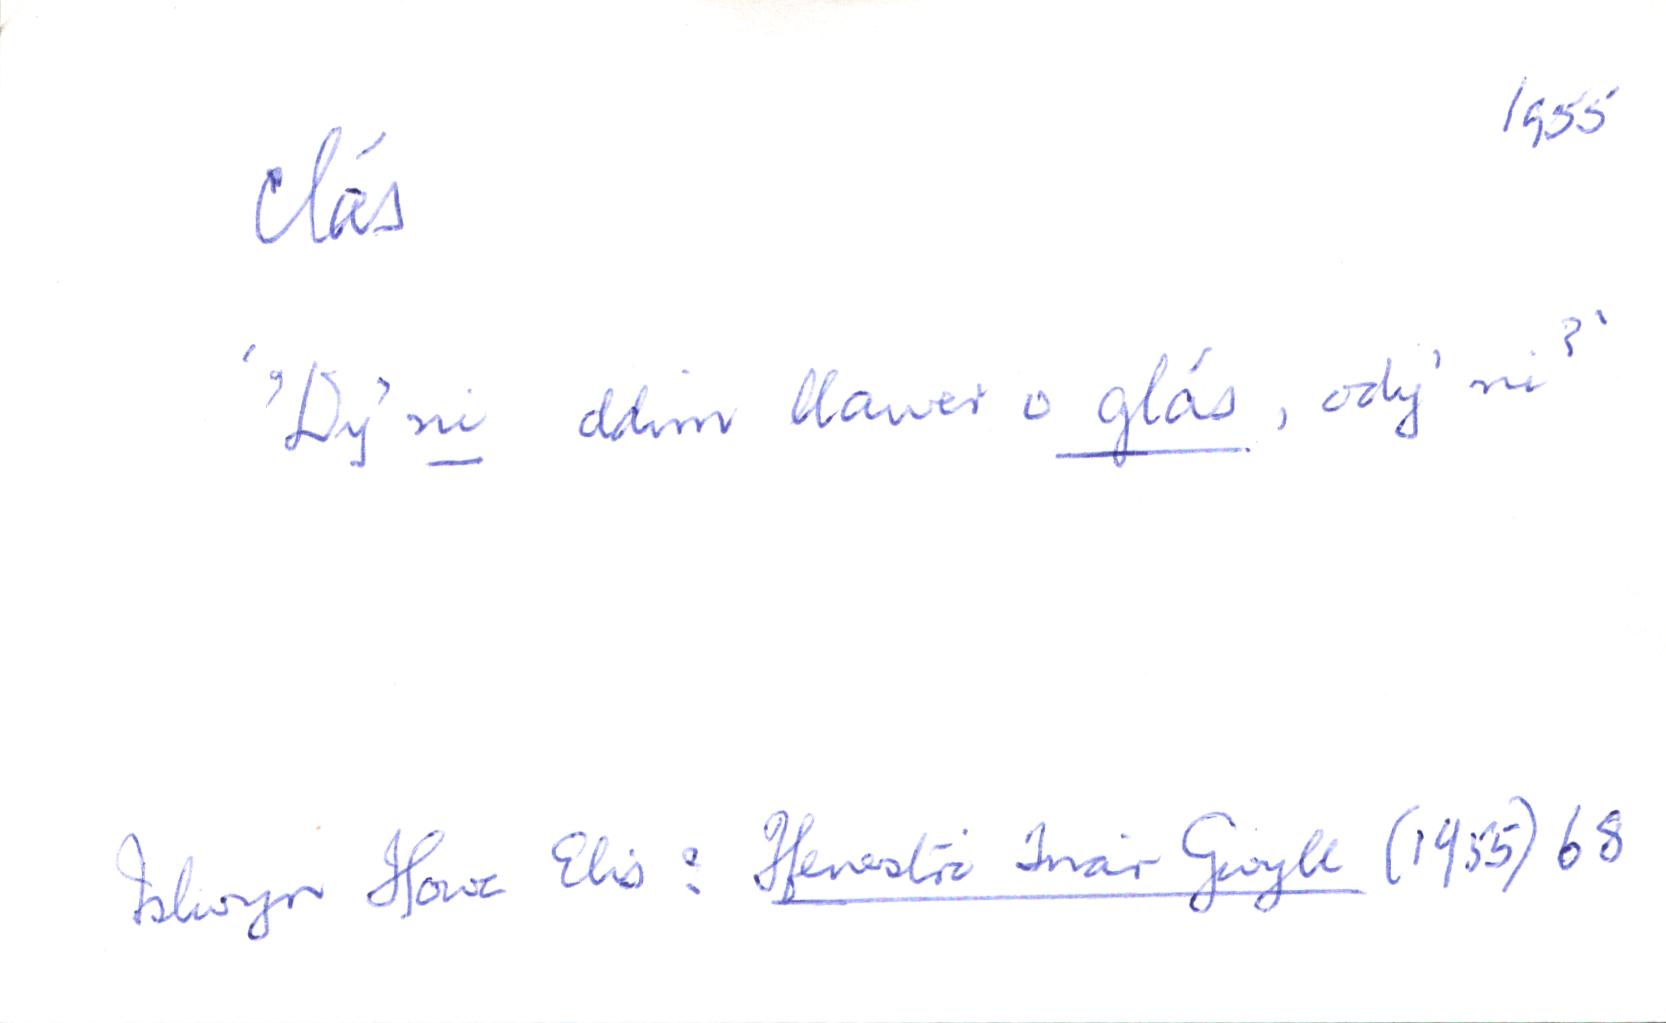 1955
clás
‘’Dy’ ni ddim llawer o glás, ody’ ni?’
Islwyn Ffowc Elis: Ffenestri Tua'r Gwyll (1955) 68